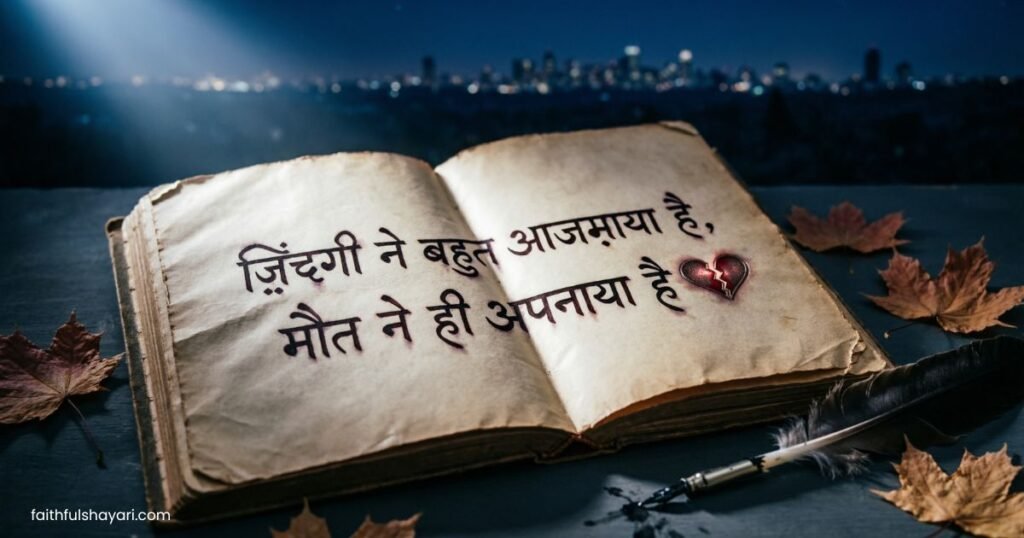 ज़िंदगी ने बहुत आजम़ाया है,
मौत ने ही अपनाया है 💔
faithfulshayari.com